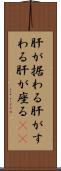 肝が据わる肝がす
わる肝が座る